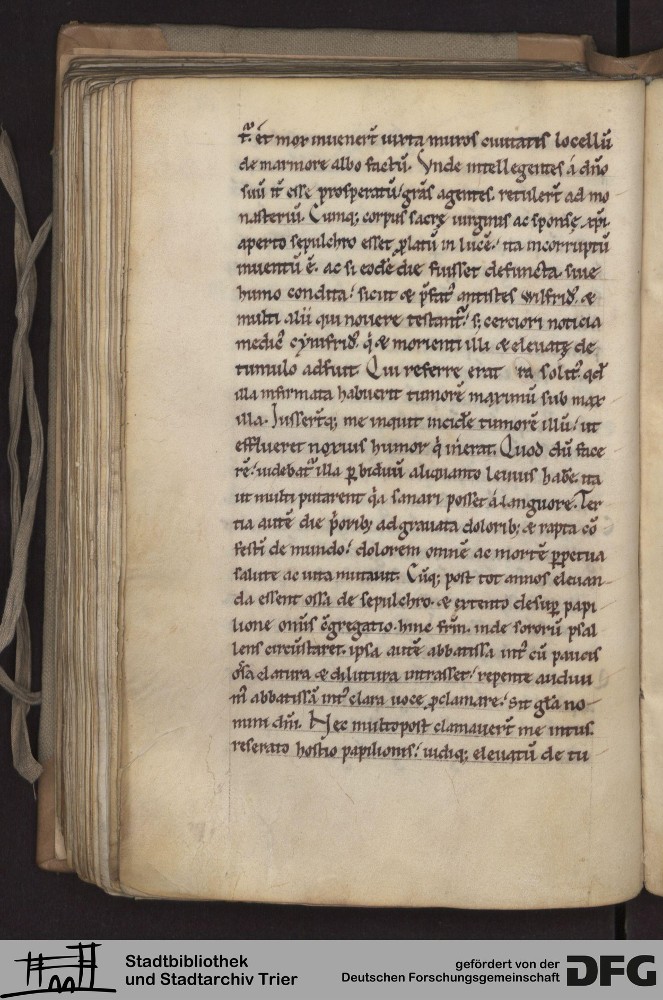 t᷑. et mox inuener̄t iuxta muros ciuitatis locellū
de marmore albo factū. Vnde intellegentes a dño
suū it̄ esse prosperatū/ grās agentes. retuler̄t ad mo
nasteriū. Cumq; corpus sacrę uirginis ac sponsę xp̄i.
aperto sepulchro esset ꝓlatū in lucē/ ita incorruptū
inuentū ē. ac si eodē die fuisset defuncta. siue
humo condita/ sicut & p̄fat᷒ antistes wilfrid᷒. &
multi alii qui nouere testant᷑/ s; cerciori noticia
medic᷒ cynifrid᷒. q̇ & morienti illi & eleuatę de
tumulo adfuit. Qui referre erat ita solit᷒. qđ
illa infirmata habuerit tumorē maximū sub max
illa. Iusser̄tq; me inquit incidere tumorē illū/ ut
efflueret noxius humor q̇ inerat. Quod dū face
rē/ uidebat᷑ illa ꝑ biduū aliquanto leuius habere. ita
ut multi putarent q̇a sanari posset a languore. Ter
tia autē die p̓orib; adgrauata dolorib; & rapta cō
festī de mundo/ dolorem omnē ac mortē ꝑpetua
salute ac uita mutauit. Cūq; post tot annos eleuan
da essent ossa de sepulchro. & extento desuꝑ papi
lione omīs cḡregatio. hinc fr̄m. inde sororū psal
lens circūstaret. ipsa autē abbatissa int᷒ cū paucis
ossa elatura & dilutura intrasset/ repente audiui
m᷒ abbatissā int᷒ clara uoce ꝓclamare/ sit gl̄a no
mini dn̄i. Nec multo post clamauer̄t me intus.
reserato hostio papilionis/ uidiq; eleuatū de tu
Stadtbibliothek
und Stadtarchiv Trier
gefördert von der
Deutschen Forschungsgemeinschaft
DFG